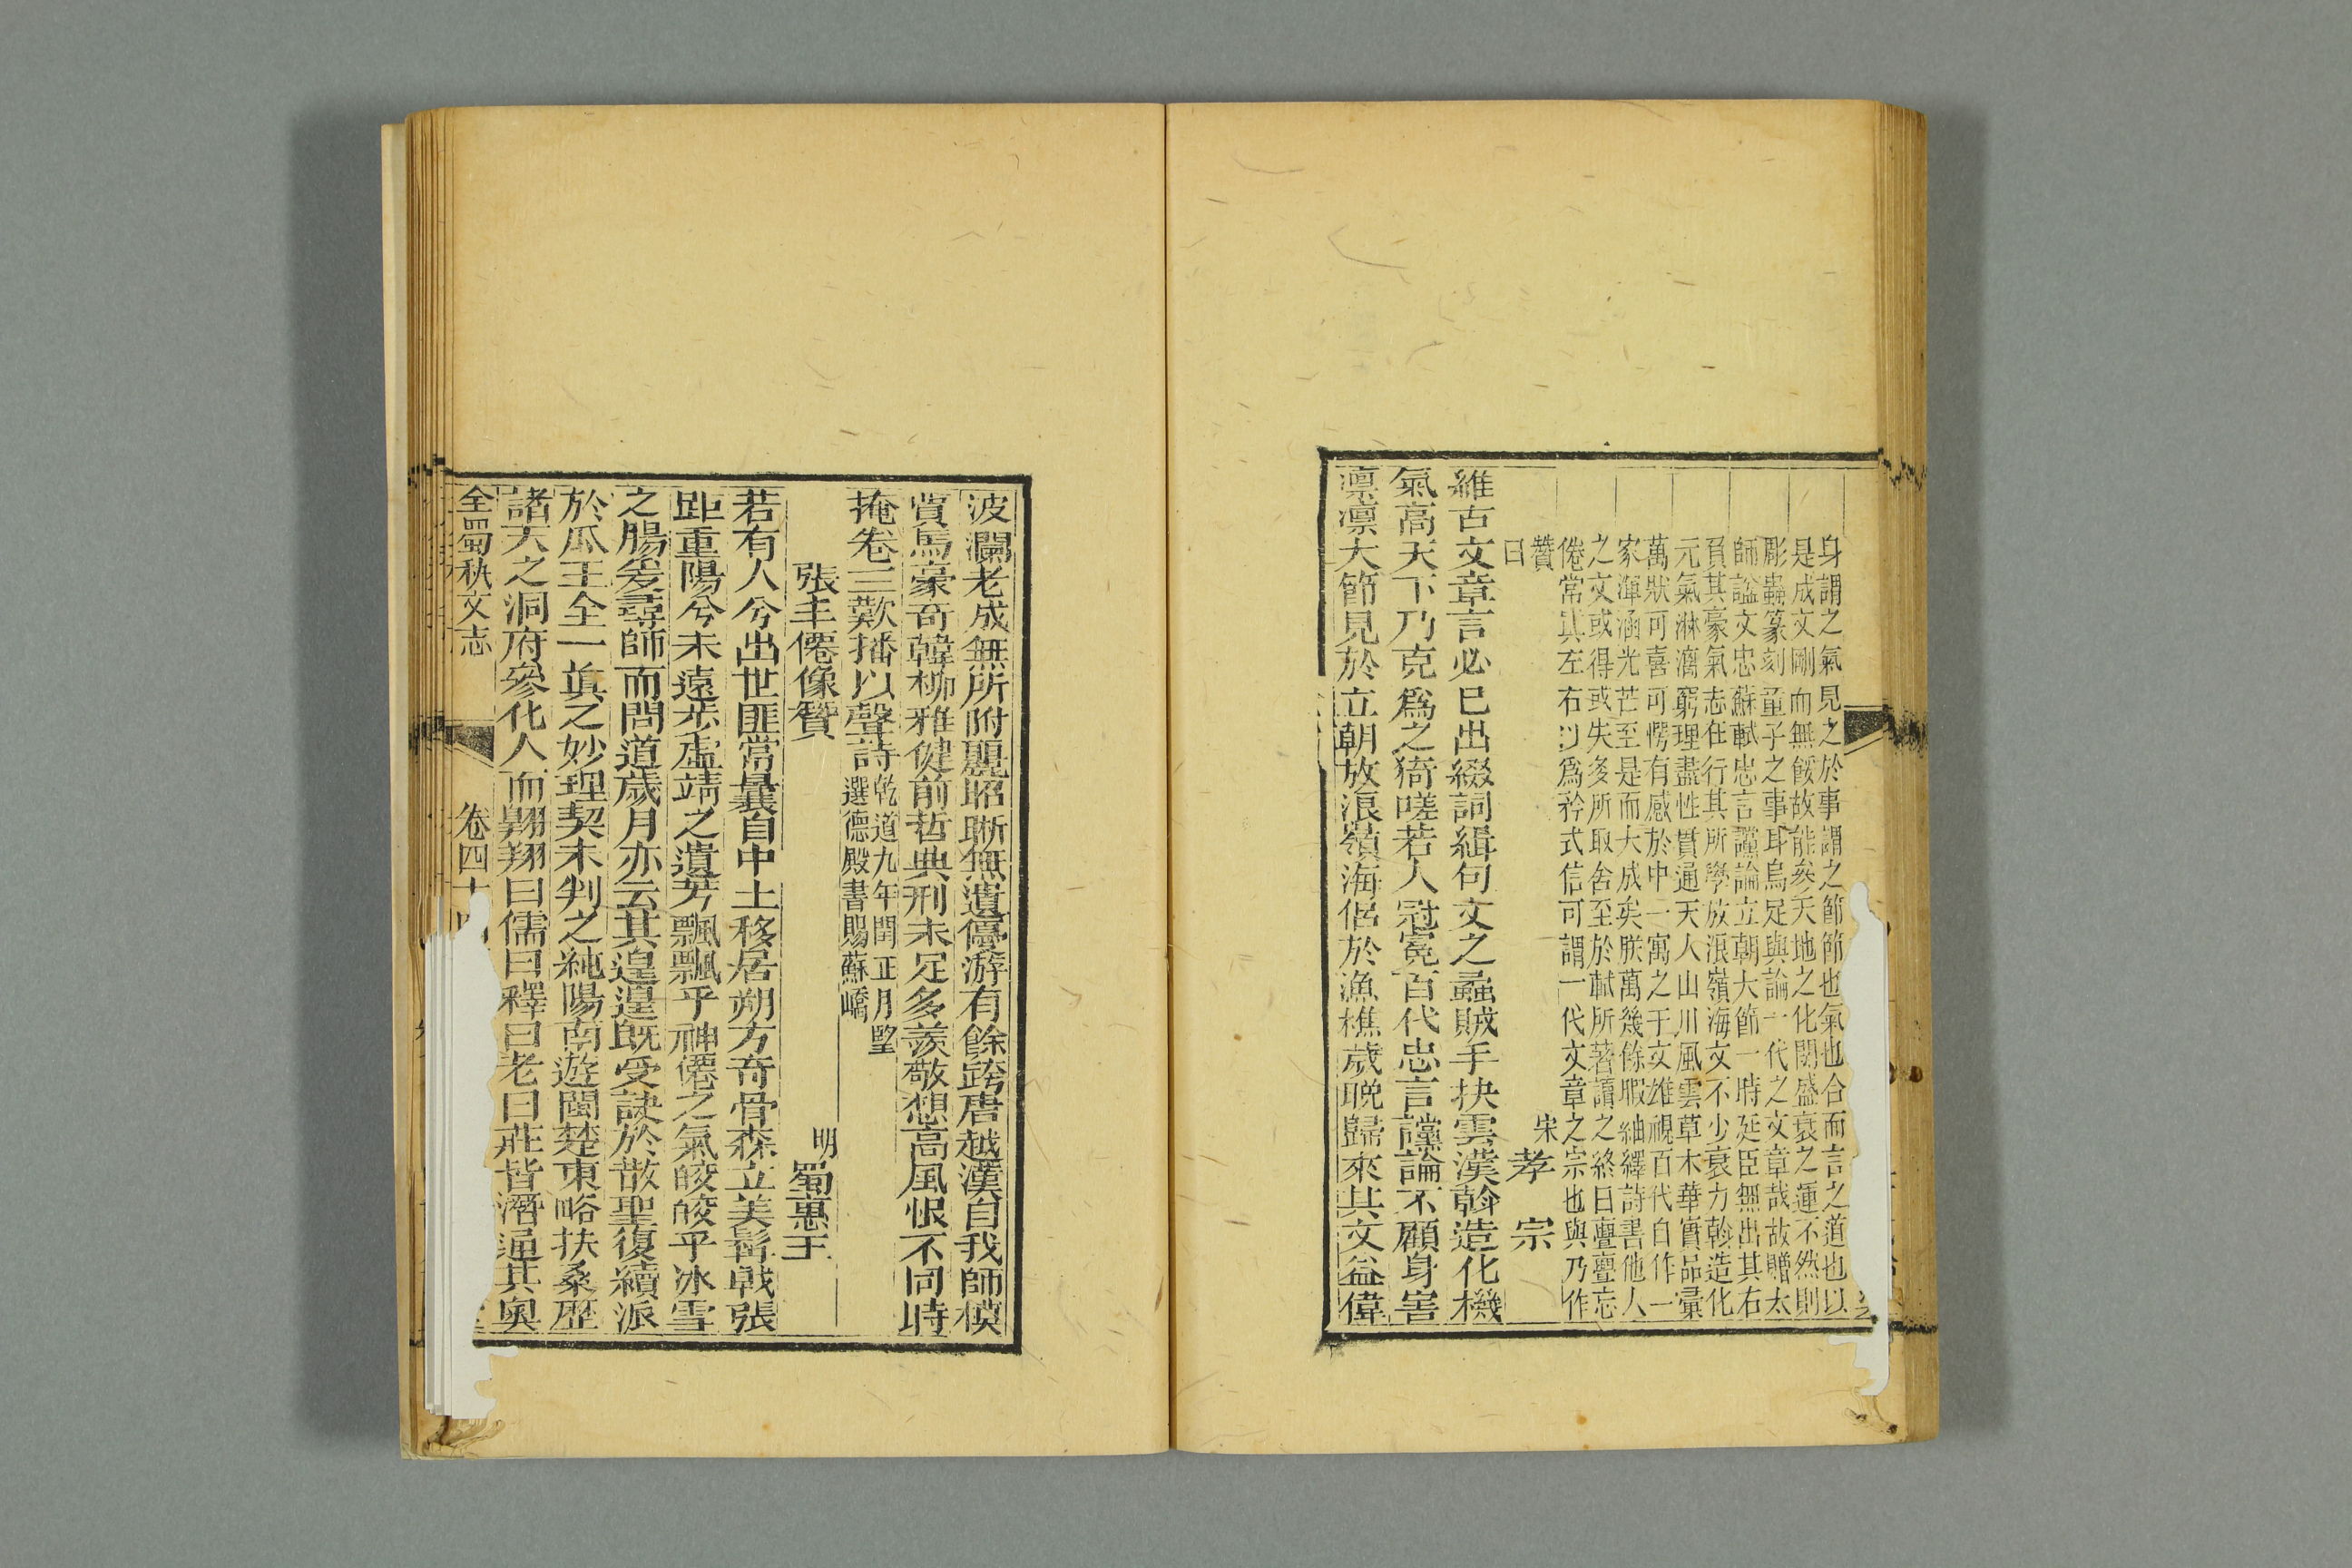 身謂之氣見之於事謂之節節也氣也合而言之道也以
是成文剛而無餒故能叅天地之化關盛衰之運不然則
彫蟲篆刻童子之事耳烏足與論一代之文章哉故贈太
師諡文忠蘇軾忠言讜論立朝大節一時延臣無出其右
負其豪氣志在行其所學放浪嶺海文不少衰力斡造化
元氣淋漓窮理盡性貫通天人山川風雲草木華實品彙
萬狀可喜可愕有感於中一寓之于文雄視百代自作一
家渾涵光芒至是而大成矣朕萬幾餘暇紬繹詩書他人
之文或得或失多所取舍至於軾所著讀之終日亹亹忘
倦常寘左右以爲矜式信可謂一代文章之宗也與乃作
贊
曰
宋 孝宗
維古文章言必已出綴詞緝句文之蟊賊手抉雲漢斡造化機
氣高天下乃克爲之猗嗟若人冠冕百代忠言讜論不顧身害
凛凛大節見於立朝放浪嶺海侶於漁樵歲晚歸來其文益偉
波瀾老成無所附麗昭晰無遺優游有餘跨唐越漢自我師模
賞馬豪奇韓柳雅健前哲典刑未足多羨敬想高風恨不同時
掩卷三歎播以聲詩 乾道九年閏正月望
選德殿書賜蘇嶠
張丰僊像贊 明 蜀惠王
若有人兮出世匪常曩自中土移居朔方奇骨森立美髯戟張
距重陽兮未遠步虛靖之遺芳飄飄乎神僊之氣皎皎乎冰雪
之腸爰尋師而問道歲月亦云其遑遑旣受訣於散聖復續派
於瓜王全一眞之妙理契未判之純陽南遊閩楚東略扶桑歷
諸天之洞府參化人而翺翔曰儒曰釋曰老曰莊皆潛通其奧
全蜀秇文志 卷四十四